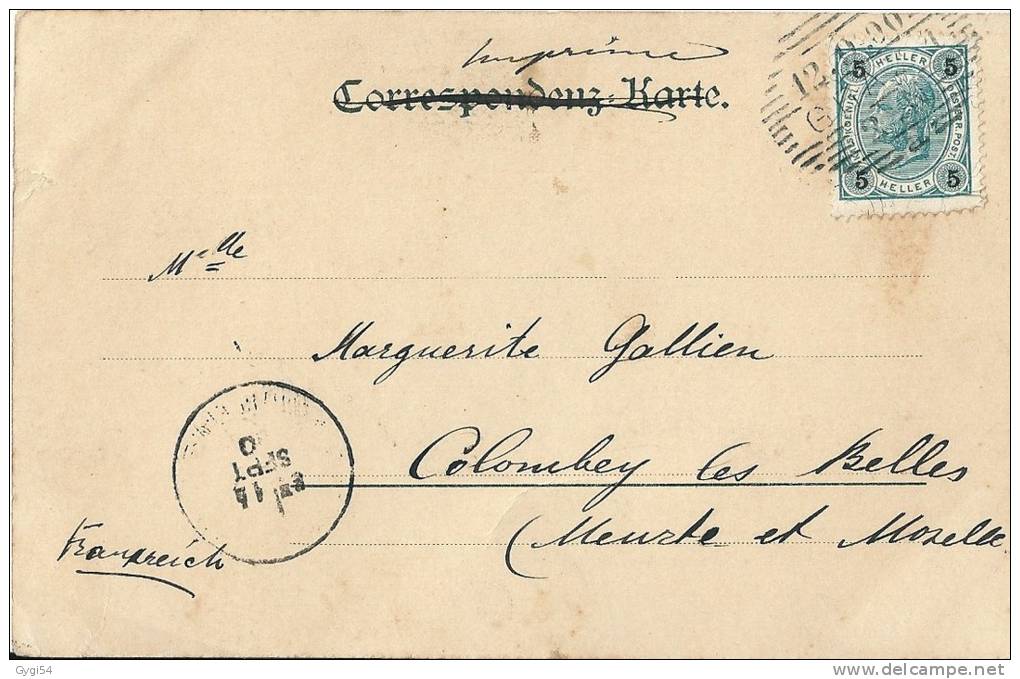 Imprimé
Correspondenz-Karte.
12.9.00
5 HELLER 5
KAIS. KOENIGL. OESTERR. POST.
5 HELLER 5
Melle
Marguerite Gallien
Colombey les Belles
(Meurte et Moselle
Frankreich
15
SEPT
Gygi54
www.delcampe.net